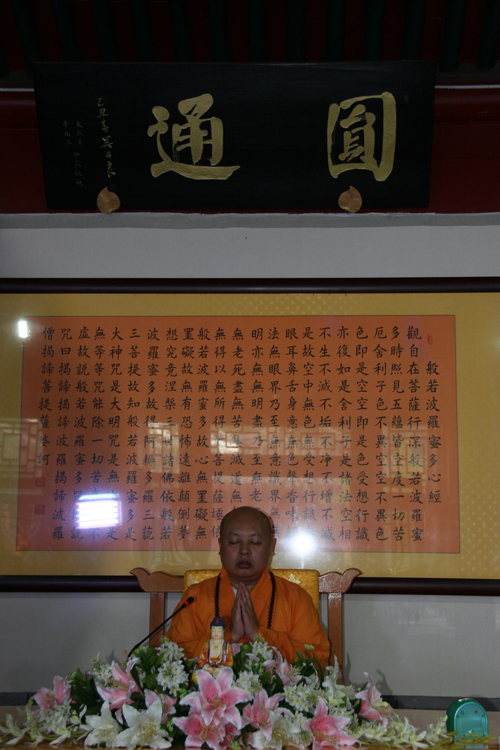 圓通
般若波羅蜜多心經
觀自在菩薩行深般若波羅蜜
多時照見五蘊皆空度一切苦
厄舍利子色不異空空不異色
色即是空空即是色受想行識
亦復如是舍利子是諸法空相
不生不滅不垢不淨不增不減
是故空中無色無受想行識
眼耳鼻舌身意無色聲香味
法無眼界乃至無意識界無
明亦無無明盡乃至無老
無老死盡無苦集滅道無
無得以無所得故菩提薩埵依
般若波羅蜜多故心無罣礙無
罣礙故無有恐怖遠離顛倒夢
想究竟涅槃三世諸佛依般若
波羅蜜多故得阿耨多羅三藐
三菩提故知般若波羅蜜多是
大神咒是大明咒是無是
無等等咒能除一切苦不
虛故說般若波羅蜜說
咒曰揭諦揭諦波羅揭諦波羅
僧揭諦菩提薩婆訶